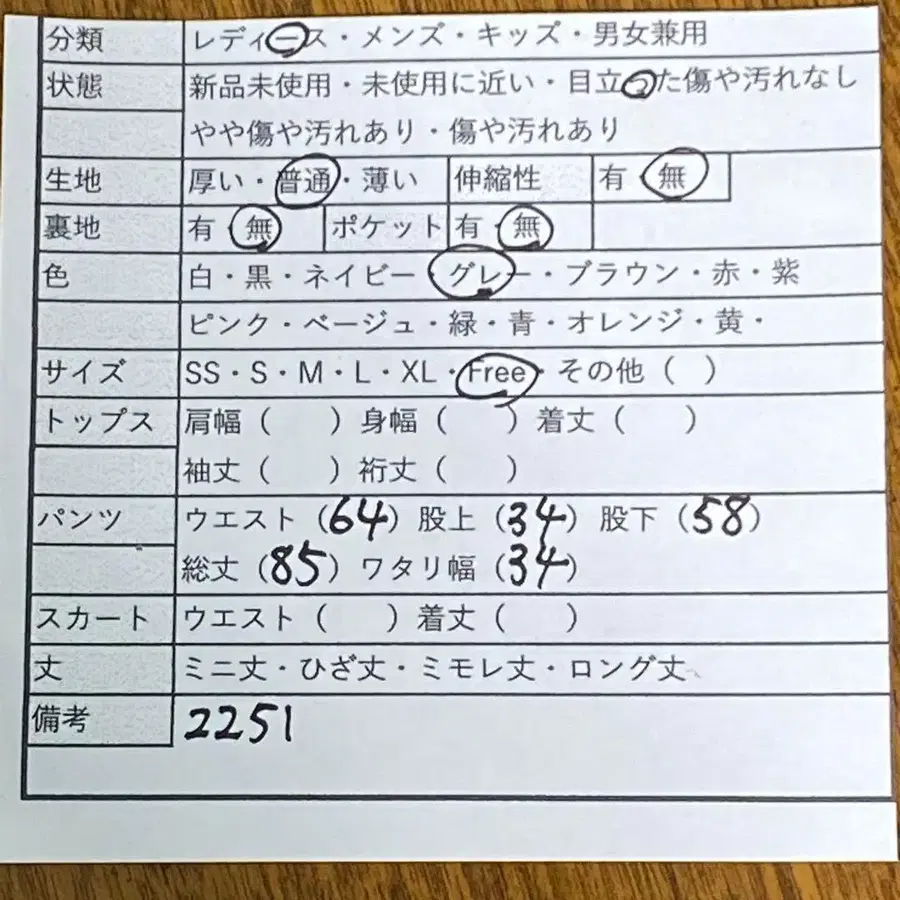 分類 レディース・メンズ・キッズ・男女兼用
状態 新品未使用・未使用に近い・目立った傷や汚れなし
やや傷や汚れあり・傷や汚れあり
生地 厚い・普通・薄い 伸縮性 有・無
裏地 有・無 ポケット 有・無
色 白・黒・ネイビー・グレー・ブラウン・赤・紫
ピンク・ベージュ・緑・青・オレンジ・黄・
サイズ SS・S・M・L・XL・Free・その他（ ）
トップス 肩幅（ ）身幅（ ）着丈（ ）
袖丈（ ）裄丈（ ）
パンツ ウエスト（64）股上（34）股下（58）
総丈（85）ワタリ幅（34）
スカート ウエスト（ ）着丈（ ）
丈 ミニ丈・ひざ丈・ミモレ丈・ロング丈
備考 2251